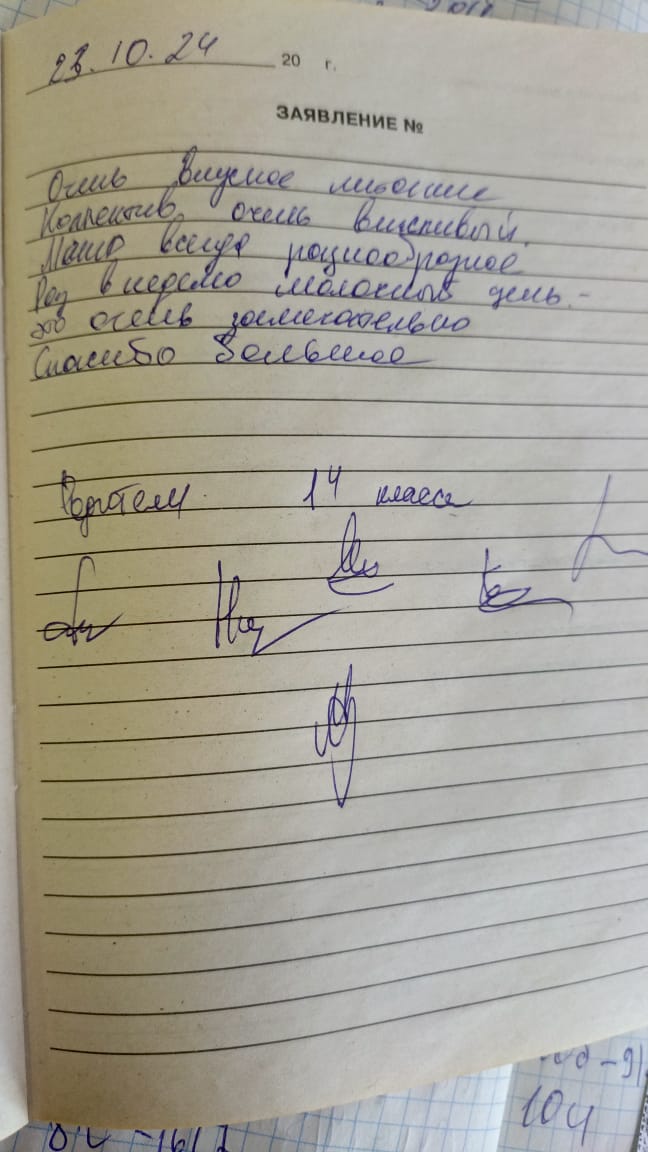 23.10.24 20 г.
ЗАЯВЛЕНИЕ №
Очень вкусное питание
Коллектив очень вежливый.
Меню всегда разнообразное
Раз в неделю молочный день -
это очень замечательно
Спасибо большое
Родители 1Ч класса
104